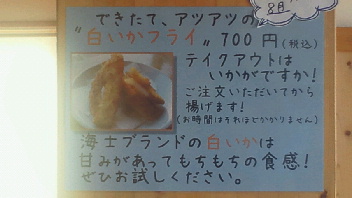 できたて、アツアツの
"白いかフライ" 700円(税込)
テイクアウトは
いかがですか!
ご注文いただいてから
揚げます!
(お時間はそれほどかかりません)
海士ブランドの白いかは
甘みがあってもちもちの食感!
ぜひお試しください。
8月